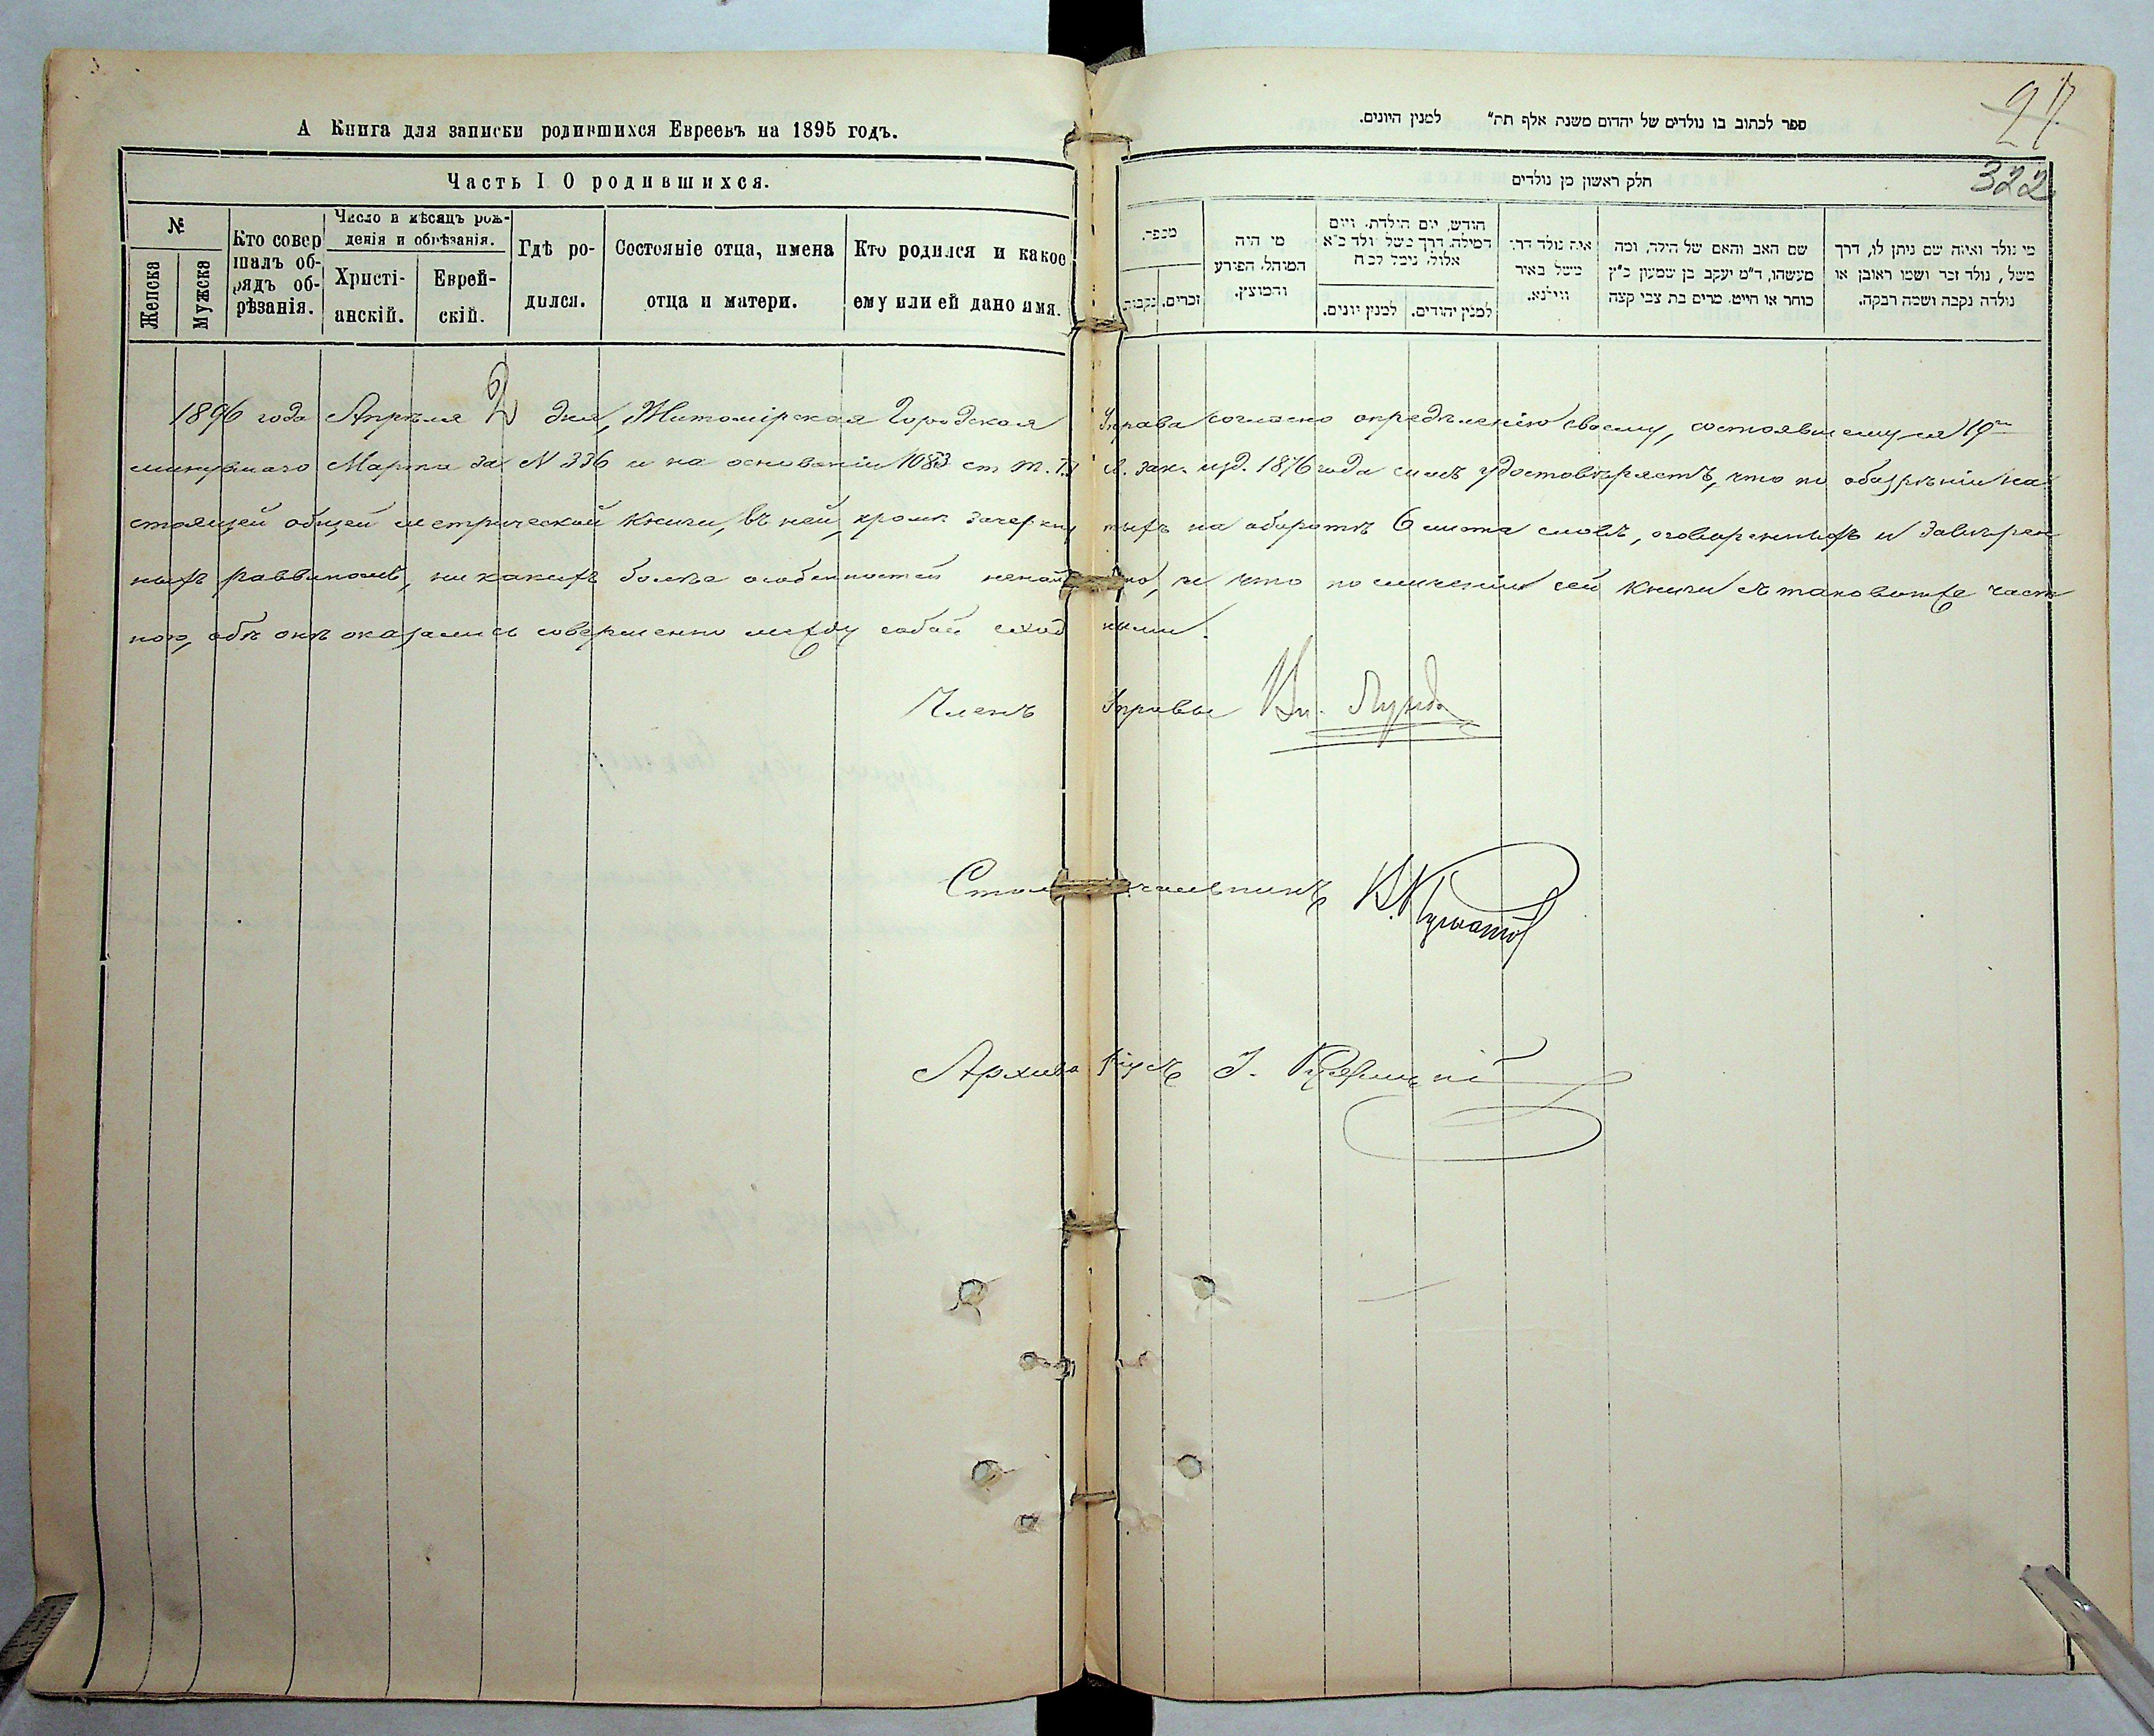 А Книга для записки родившихся Евреевъ на 1895 годъ.
Часть I О родившихся.
№
Женска
Мужска
Кто совер
шалъ об-
рядъ об-
рѣзанія.
Число и мѣсяцъ рож-
денія и обрѣзанія.
Христі-
анскій.
Еврей-
скій.
Гдѣ ро-
дился.
Состояніе отца, имена
отца и матери.
Кто родился и какое
ему или ей дано имя.
27
322
ספר לכתוב בו נולדים של יהדום משנת אלף תת״ למנין היונים.
חלק ראשון מן נולדים
מספר.
נקבות.
זכרים.
מי היה
המוהל. הפורע
והמוצץ.
חודש, יום הולדת. ויום
המילה. דרך משל נולד כ״א
אלול. נימל לכ״ח
למנין יונים.
למנין יהודים.
איה נולד דרך
משל באיר
ווילנא.
שם האב והאם של הילד, ומה
מעשהו, ד״מ יעקב בן שמעון כ״ץ
סוחר או חייט. מרים בת צבי קצה
מי נולד ואיזה שם ניתן לו, דרך
משל, נולד זכר ושמו ראובן או
נולדה נקבה ושמה רבקה.
1896 года Апрѣля 2 дня, Житомірская Городская Управа согласно опредѣленію своему, состоявшемуся 19го
минувшаго Марта за N 336 и на основаніи 1083 ст. т. зак. изд. 1876 года симъ удостовѣряетъ, что по обозрѣніи на
стоящей общей метрической книги, въ ней, кромѣ зачеркнутыхъ на оборотѣ 6 листа словъ, оговоренныхъ и завѣрен
ныхъ раввиномъ, никакихъ болѣе особенностей ненайдено, и что по сличеніи сей книги съ таковоюже част
ною, обѣ онѣ оказались совершенно между собой сходными.
Членъ Управы
Столоначальникъ
Архиваріусъ